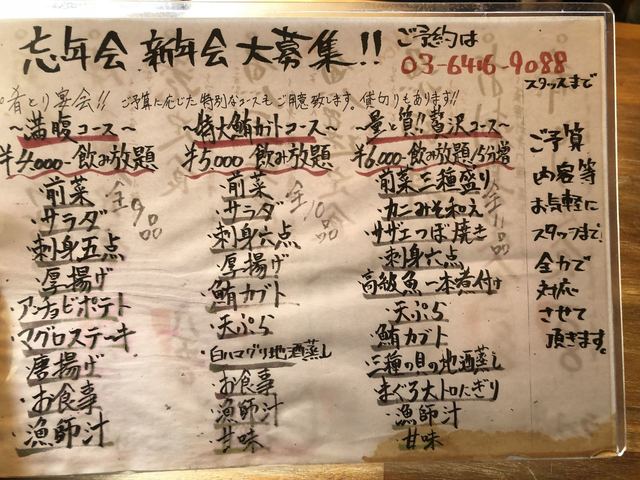 忘年会 新年会 大募集!!
ご予約は
03-6416-9088
スタッフまで
肴とり宴会!! ご予算に応じた特別なコースもご用意致します。貸切りもあります!!
~満腹コース~
¥4,000-飲み放題
全9品
・前菜
・サラダ
・刺身五点
・厚揚げ
・アンチョビポテト
・マグロステーキ
・唐揚げ
・お食事
・漁師汁
~特大鮪カブトコース~
¥5,000-飲み放題
全10品
・前菜
・サラダ
・刺身六点
・厚揚げ
・鮪カブト
・天ぷら
・白ハマグリ地酒蒸し
・お食事
・漁師汁
・甘味
~量と質!!贅沢コース~
¥6,000-飲み放題
全11品
・前菜三種盛り
・カニみそ和え
・サザエつぼ焼き
・刺身六点
・高級魚一本煮付け
・天ぷら
・鮪カブト
・三種の貝の地酒蒸し
・まぐろ大トロにぎり
・漁師汁
・甘味
ご予算
内容等
お気軽に
スタッフまで、
全力で
対応
させて
頂きます。